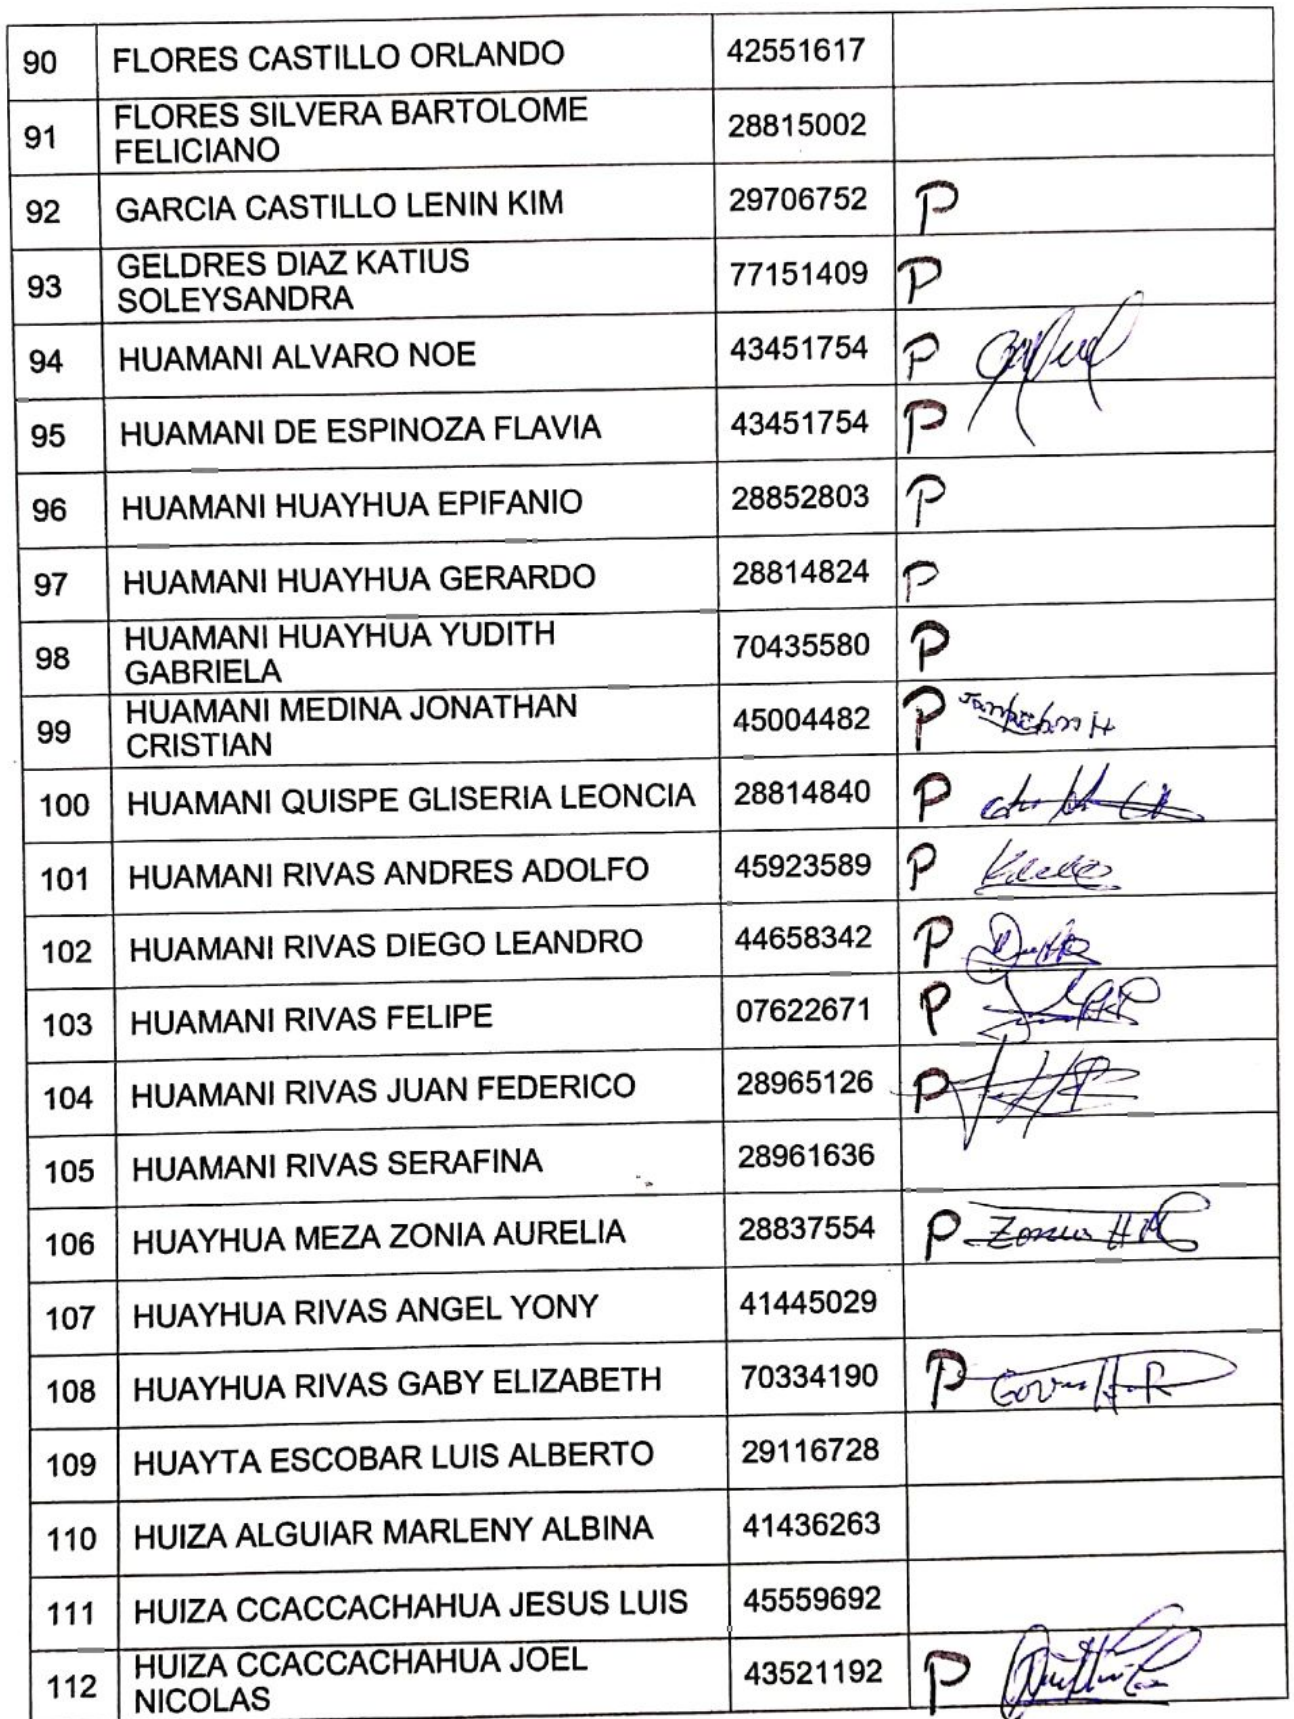 90 FLORES CASTILLO ORLANDO 42551617
91 FLORES SILVERA BARTOLOME 28815002
FELICIANO
92 GARCIA CASTILLO LENIN KIM 29706752 P
93 GELDRES DIAZ KATIUS 77151409 P
SOLEYSANDRA
94 HUAMANI ALVARO NOE 43451754 P
95 HUAMANI DE ESPINOZA FLAVIA 43451754 P
96 HUAMANI HUAYHUA EPIFANIO 28852803 P
97 HUAMANI HUAYHUA GERARDO 28814824 P
98 HUAMANI HUAYHUA YUDITH 70435580 P
GABRIELA
99 HUAMANI MEDINA JONATHAN 45004482 P
CRISTIAN
100 HUAMANI QUISPE GLISERIA LEONCIA 28814840 P
101 HUAMANI RIVAS ANDRES ADOLFO 45923589 P
102 HUAMANI RIVAS DIEGO LEANDRO 44658342 P
103 HUAMANI RIVAS FELIPE 07622671 P
104 HUAMANI RIVAS JUAN FEDERICO 28965126 P
105 HUAMANI RIVAS SERAFINA 28961636
106 HUAYHUA MEZA ZONIA AURELIA 28837554 P
107 HUAYHUA RIVAS ANGEL YONY 41445029
108 HUAYHUA RIVAS GABY ELIZABETH 70334190 P
109 HUAYTA ESCOBAR LUIS ALBERTO 29116728
110 HUIZA ALGUIAR MARLENY ALBINA 41436263
111 HUIZA CCACCACHAHUA JESUS LUIS 45559692
112 HUIZA CCACCACHAHUA JOEL 43521192 P
NICOLAS